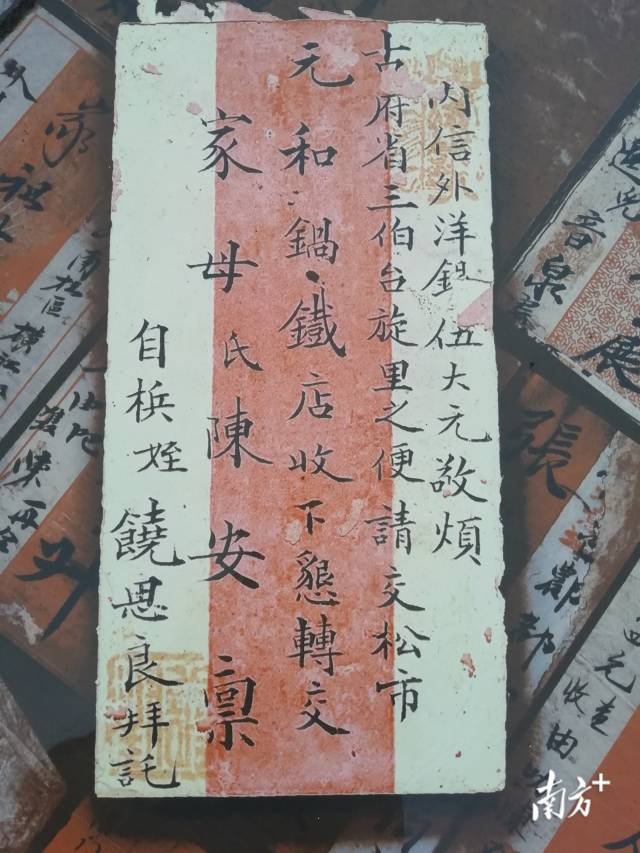 內信外洋銀伍大元敬煩
古府省三伯台旋里之便請交松市
元和鍋鐵店收下懇轉交
家母氏陳安禀
自梹姪饒思良拜託
家祖
音泉
展
張
南方+